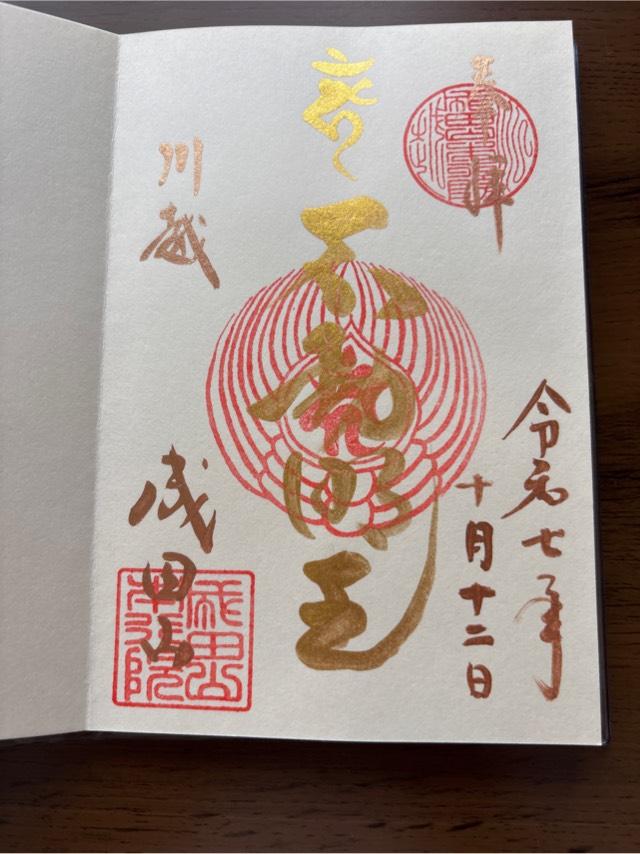 奉拝
令和七年
十月十二日
不動明王
川越
成田山
成田山
本行院